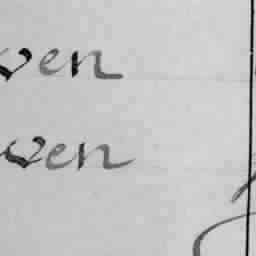 ven
wen